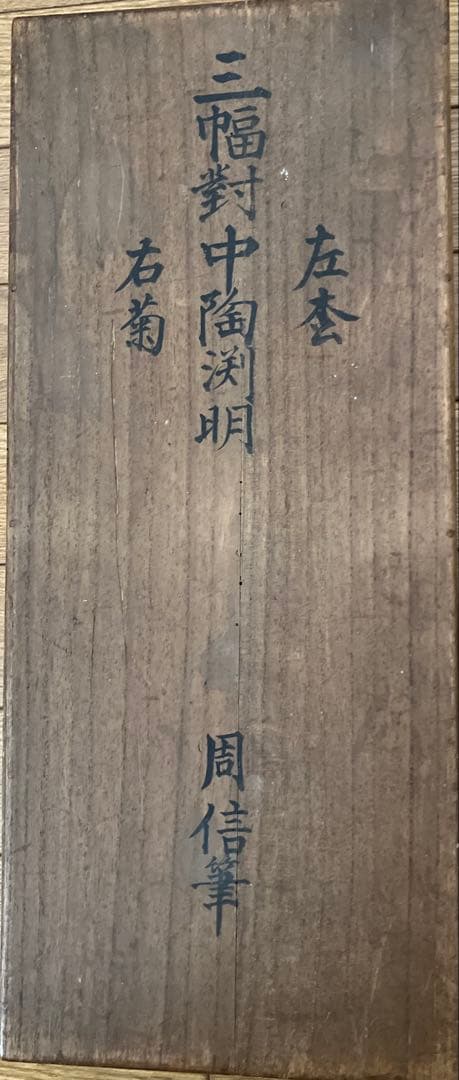 左枩
三幅對中陶渕明
右菊
周信筆